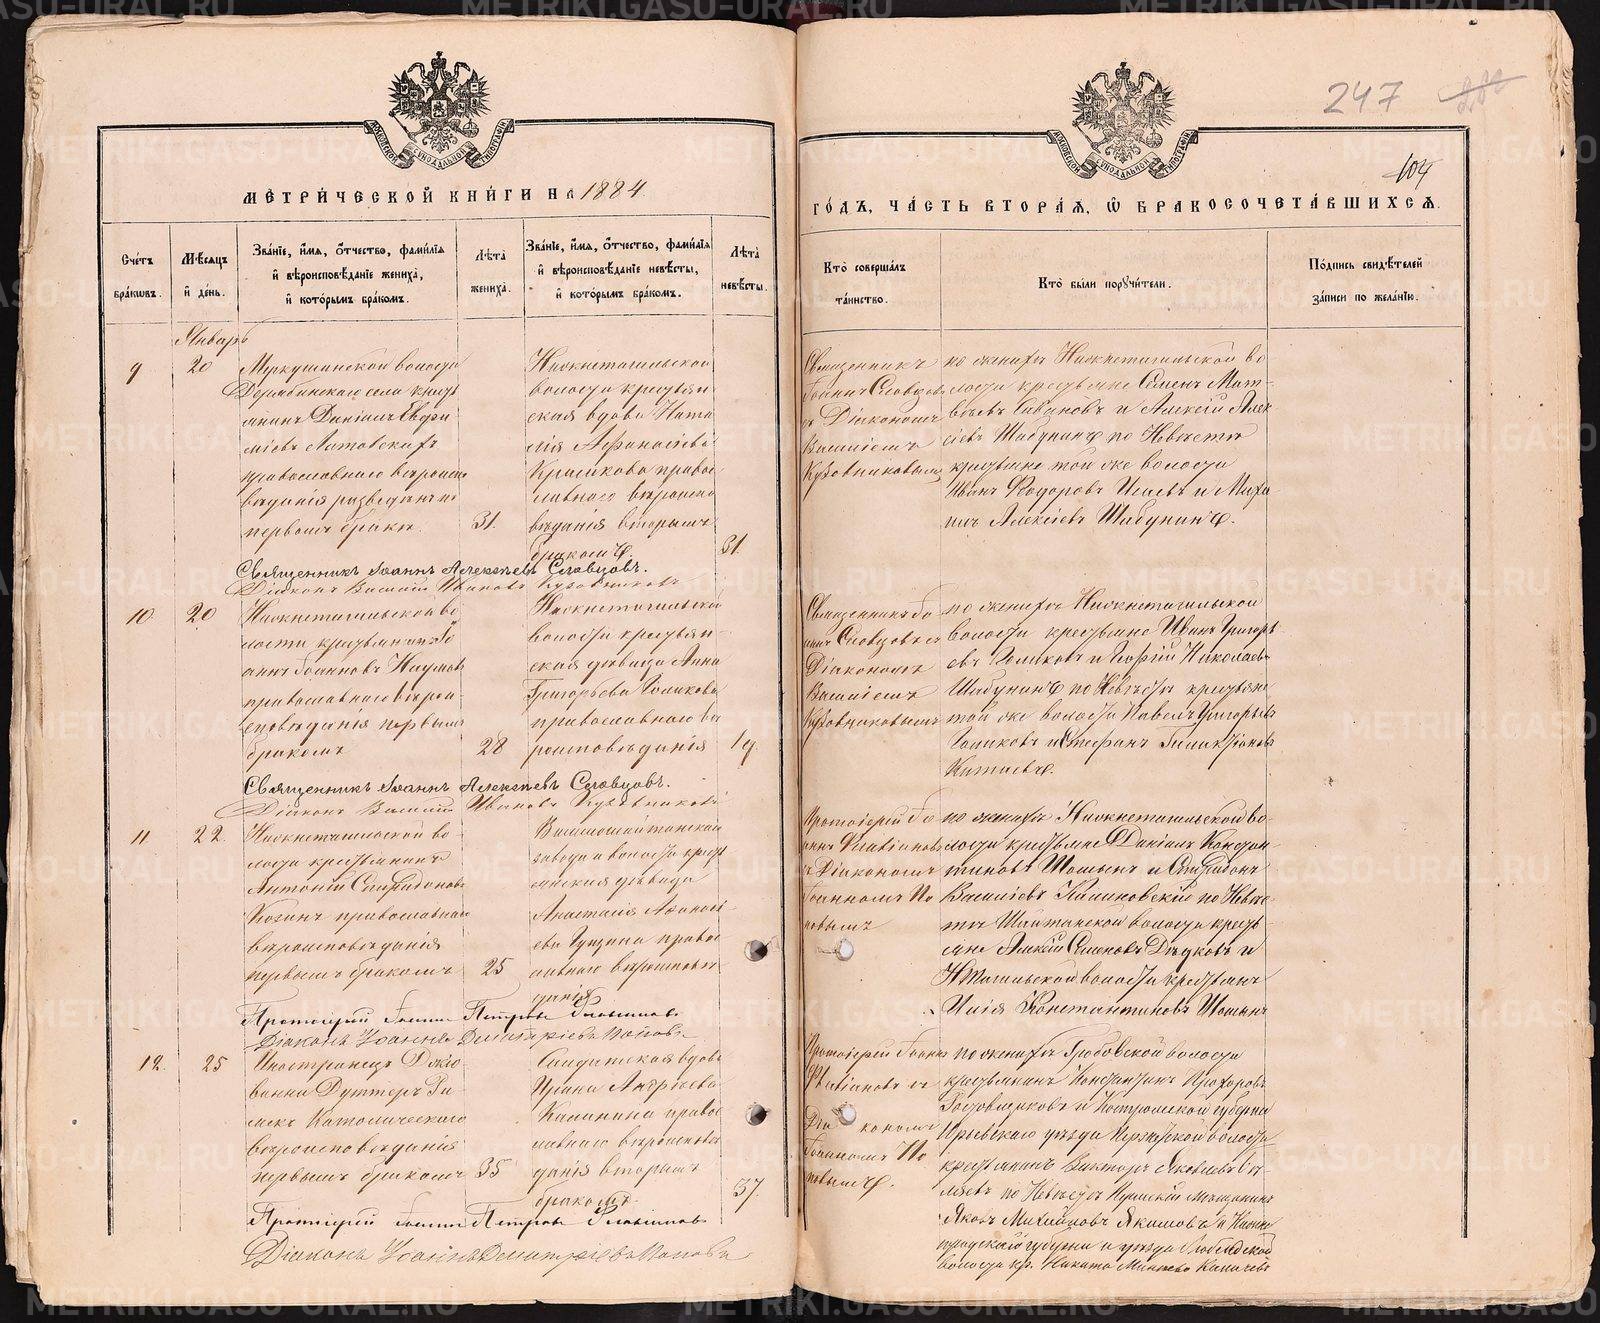 247
104
МЕТРИЧЕСКОЙ КНИГИ НА 1884
ГОДЪ, ЧАСТЬ ВТОРАЯ, Ѡ БРАКОСОЧЕТАВШИХСЯ.
Счетъ браковъ.
Мѣсяцъ и день.
Званіе, имя, отчество, фамилія
и вѣроисповѣданіе жениха,
и которымъ бракомъ.
Лѣта жениха.
Званіе, имя, отчество, фамилія
и вѣроисповѣданіе невѣсты,
и которымъ бракомъ.
Лѣта невѣсты.
Кто совершалъ
таинство.
Кто были поручители.
Подпись свидѣтелей
записи по желанію.
Январь
9
20
Даніилъ Евфи
міевъ
православнаго вѣроиспо
вѣданія
первомъ бракѣ.
31.
Нижнетагильской
волости крестьян
ская вдова Ната
лія Афанасіева
Красикова правос
лавнаго вѣроиспо
вѣданія вторымъ
бракомъ.
31.
Священникъ
Іоаннъ Словцовъ
съ Діакономъ
Василіемъ
Кузовниковымъ
по женихѣ Нижнетагильской во
лости крестьяне Семенъ Мат
вѣевъ и Алексій Алек
сіевъ Шабунинъ по невѣстѣ
крестьяне той же волости
Иванъ Ѳедоровъ Исаевъ и Миха
илъ Алексіевъ Шабунинъ.
Священникъ Іоаннъ Алексѣевъ Словцовъ.
Діаконъ Василій Ивановъ Кузовниковъ
10
20
Нижнетагильской во
лости крестьянинъ Іо
аннъ Іоанновъ Наумовъ
православнаго вѣрои
споведанія первымъ
бракомъ
28
Нижнетагильской
волости крестьян
ская дѣвица Анна
Григорьева Голикова
православнаго вѣ
роисповѣданія
19.
Священникъ Іо
аннъ Словцовъ съ
Діакономъ
Василіемъ
Кузовниковымъ
по женихѣ Нижнетагильской
волости крестьяне Иванъ Григорь
евъ Голиковъ и Георгій Николаевъ
Шабунинъ по невѣстѣ крестьяне
той же волости Павелъ Григорьевъ
Голиковъ и Стефанъ
Китаевъ.
Священникъ Іоаннъ Алексѣевъ Словцовъ.
Діаконъ Василій Ивановъ Кузовниковъ
11
22.
Нижнетагильской во
лости крестьянинъ
Антоній Спиридоновъ
Козинъ православнаго
вѣроисповѣданія
первымъ бракомъ
25
завода и волости кресть
янская дѣвица
Анастасія Афанась
ева правос
лавнаго вѣроисповѣ
данія
Протоіерей Іо
аннъ Флавіановъ
съ Діакономъ
Іоанномъ По
повымъ
по женихѣ Нижнетагильской во
лости крестьяне Даніилъ Констан
тиновъ и Спиридонъ
Василіевъ по невѣс
тѣ Шайтанской волости кресть
яне Алексій Семеновъ Дѣдковъ и
НТагильской волости крестьян
Константиновъ
Протоіерей Іоаннъ Петровъ Флавіановъ
Діаконъ Іоаннъ Димитріевъ Поповъ
12.
25
Иностранецъ Джіо
ванни Дуттеръ Ри
мско Католическаго
вѣроисповѣданія
первымъ бракомъ
35
Солдатская вдова
Ирина Андреева
Калинина правос
лавнаго вѣроисповѣ
данія вторымъ
бракомъ.
37.
Протоіерей Іоаннъ
Флавіановъ съ
Діакономъ
Іоанномъ По
повымъ.
по женихѣ Гробовской волости
крестьянинъ Константинъ Прохоровъ
и Костромской губерніи
крестьянинъ Викторъ Яковлевъ
по невѣстѣ мѣщанинъ
Яковъ Михайловъ Якимовъ и Ниже
городской губерніи и уѣзда
волости кр. Никита
Протоіерей Іоаннъ Петровъ Флавіановъ
Діаконъ Іоаннъ Димитріевъ Поповъ
METRIKI.GASO-URAL.RU